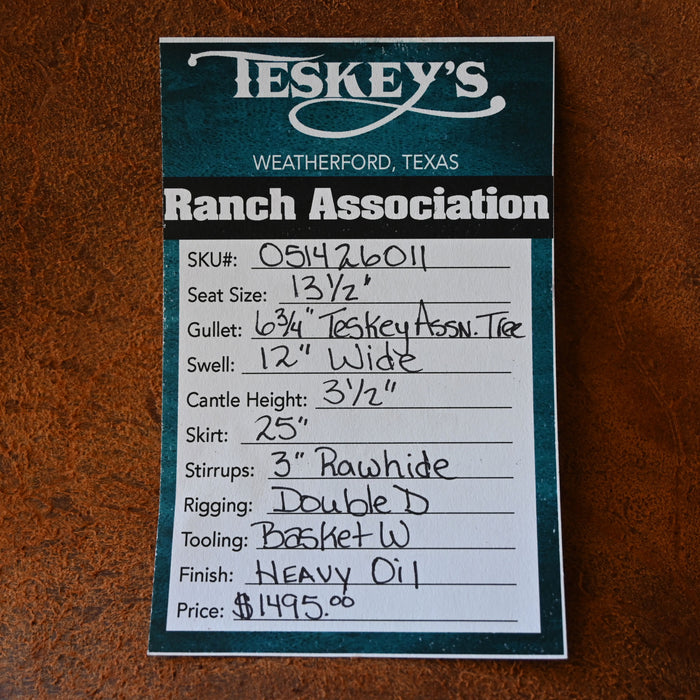 TESKEY'S
WEATHERFORD, TEXAS
Ranch Association
SKU#: 051426011
Seat Size: 13 1/2"
Gullet: 6 3/4" Teskey Assn. Tree
Swell: 12" Wide
Cantle Height: 3 1/2"
Skirt: 25"
Stirrups: 3" Rawhide
Rigging: Double D
Tooling: Basket W
Finish: HEAVY Oil
Price: $1495.00